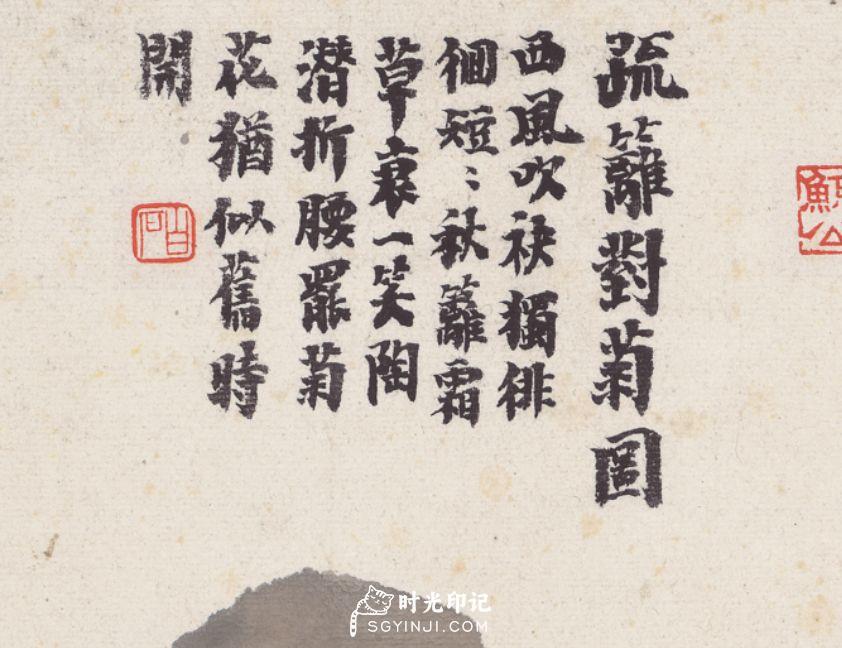 疏籬對菊圖
西風吹袂獨徘
徊短〻秋籬霜
草衰一笑陶
潛折腰罷菊
花猶似舊時
開
时光印记
SGYINJI.COM